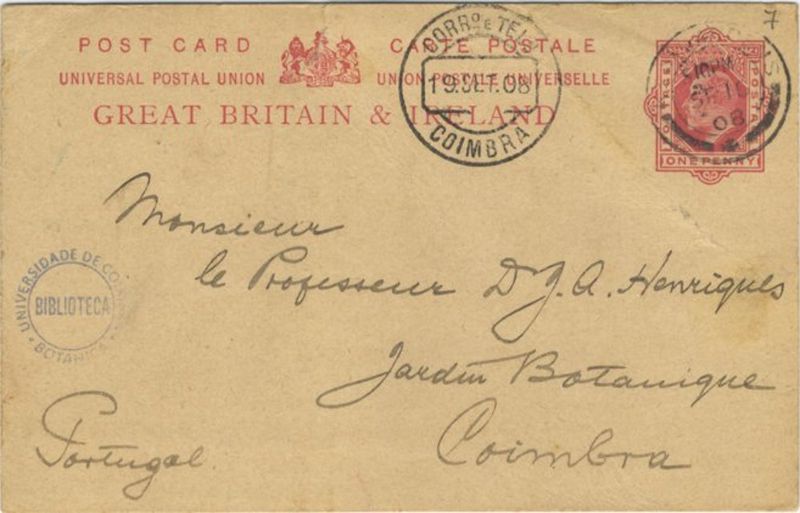 7
POST CARD CARTE POSTALE
UNIVERSAL POSTAL UNION UNION POSTALE UNIVERSELLE
GREAT BRITAIN & IRELAND
CORRO E TEL
19.SET.08
COIMBRA
POSTAGE
SP 11
08
ONE PENNY
Monsieur
le Professeur Dr J. A. Henriques
Jardin Botanique
Coimbra
Portugal
UNIVERSIDADE DE
BIBLIOTECA
BOTANICA